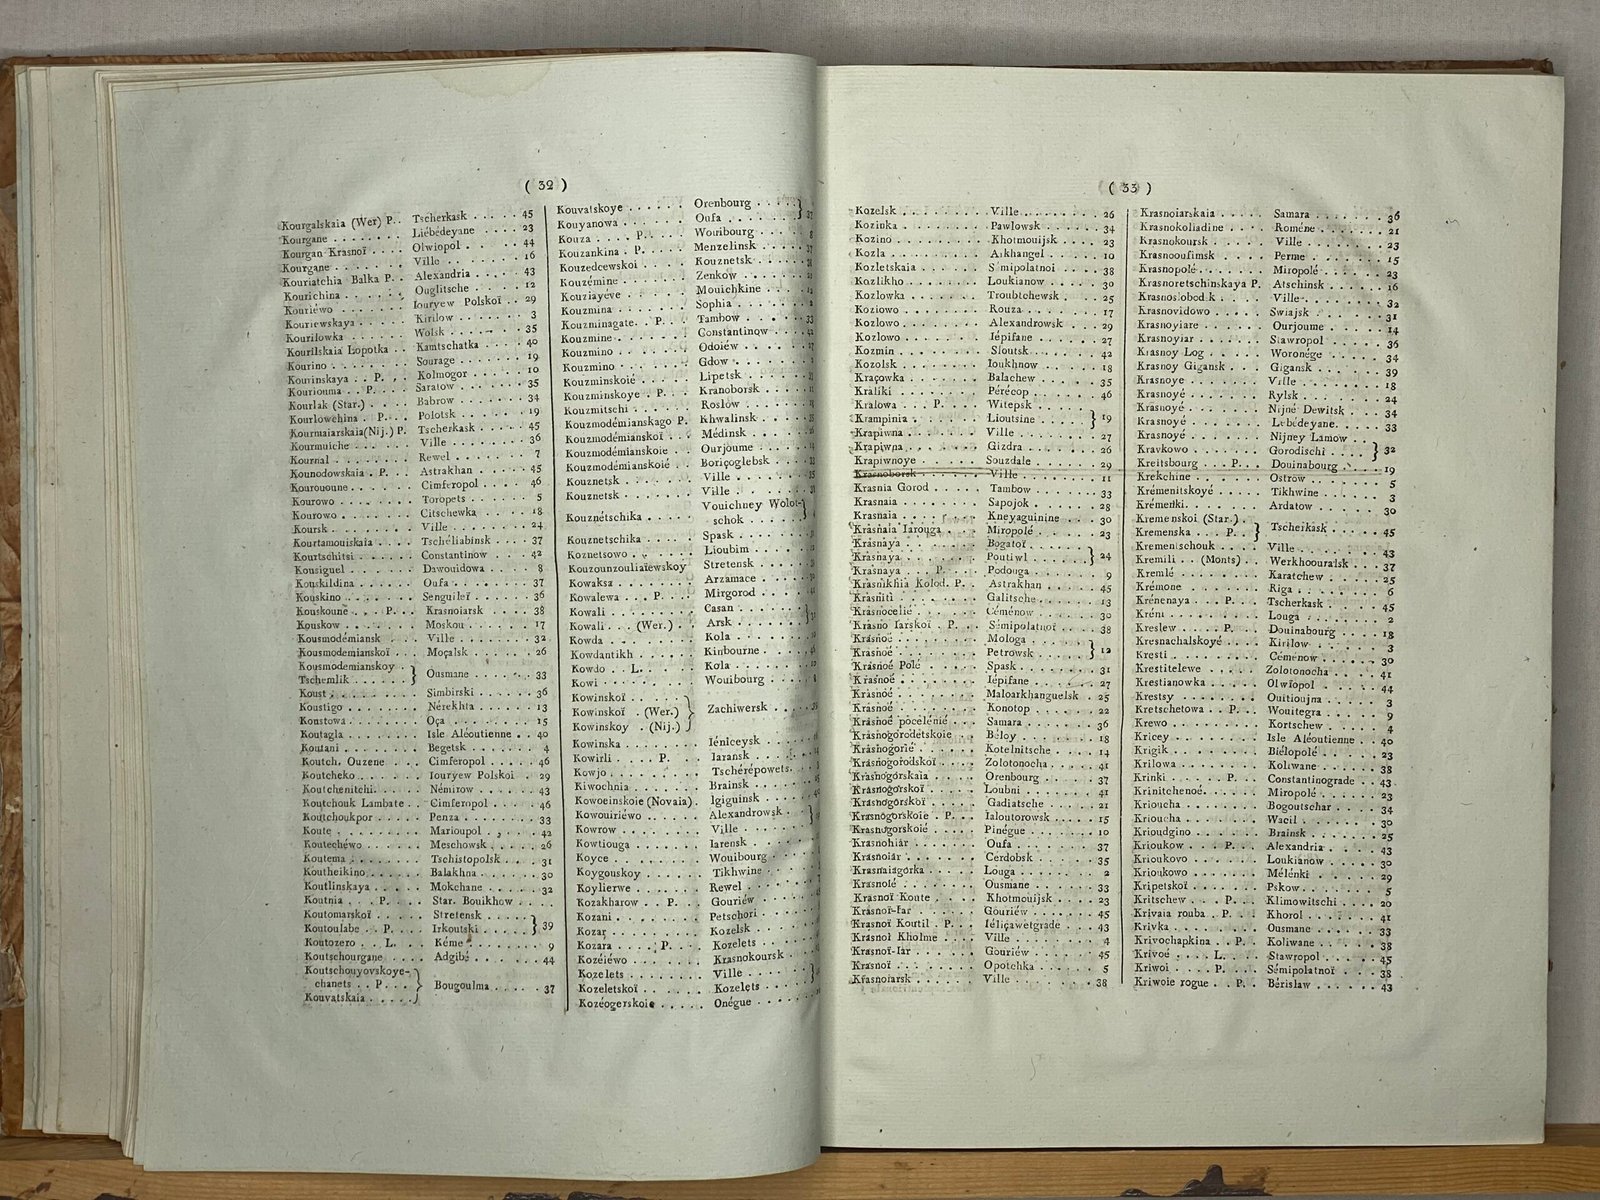 ( 32 )
Kourgalskaia (Wer) P. . Tscherkask . . . . . 45
Kourgane . . . . . . . Liébédeyane . . . . 23
Kourgan Krasnoï . . . . Olwiopol . . . . . 44
Kourgane . . . . . . . Ville . . . . . . . 16
Kouriatchia Balka P. . Alexandria . . . . . 43
Kourichina . . . . . . Ouglitsche . . . . . 12
Kouriéwo . . . . . . . Iouryew Polskoï . . 29
Kouriewskaya . . . . . Kirilow . . . . . . 3
Kourilowka . . . . . . Wolsk . . . . . . . 35
Kourilskaia Lopotka . . Kamtschatka . . . . 40
Kourino . . . . . . . . Sourage . . . . . . 19
Kourinskaya . . P. . . Kolmogor . . . . . 10
Kouriouma . . P. . . . Saratow . . . . . . 35
Kourlak (Star.) . . . . Babrow . . . . . . 34
Kourlowchina . . P. . . Polotsk . . . . . . 19
Kourmaiarskaia(Nij.) P. Tscherkask . . . . . 45
Kourmuiche . . . . . . Ville . . . . . . . 36
Kournal . . . . . . . . Rewel . . . . . . . 7
Kounodowskaia . P. . . Astrakhan . . . . . 45
Kourououne . . . . . . Cimferopol . . . . . 46
Kourowo . . . . . . . . Toropets . . . . . . 5
Kourowo . . . . . . . . Citschewka . . . . . 18
Koursk . . . . . . . . Ville . . . . . . . 24
Kourtamouiskaia . . . . Tschéliabinsk . . . 37
Kourtschitsi . . . . . Constantinow . . . . 42
Kousiguel . . . . . . . Dawouidowa . . . . . 8
Kouskildina . . . . . . Oufa . . . . . . . . 37
Kouskino . . . . . . . Senguileï . . . . . 36
Kouskoune . . . P. . . Krasnoiarsk . . . . 38
Kouskow . . . . . . . . Moskou . . . . . . . 17
Kousmodémiansk . . . . Ville . . . . . . . 32
Kousmodemianskoï . . . Moçalsk . . . . . . 26
Kousmodemianskoy . . }
Tschemlik . . . . . . } Ousmane . . . . . . 33
Koust . . . . . . . . . Simbirski . . . . . 36
Koustigo . . . . . . . Nérekhta . . . . . . 13
Koustowa . . . . . . . Oça . . . . . . . . 15
Koutagla . . . . . . . Isle Aléoutienne . . 40
Koutani . . . . . . . . Begetsk . . . . . . 4
Koutch. Ouzene . . . . Cimferopol . . . . . 46
Koutcheko . . . . . . . Iouryew Polskoi . . 29
Koutchenitchi . . . . . Némirow . . . . . . 43
Koutchouk Lambate . . . Cimferopol . . . . . 46
Koutchoukpor . . . . . Penza . . . . . . . 33
Koute . . . . . . . . . Marioupol . . . . . 42
Koutechéwo . . . . . . Meschowsk . . . . . 26
Koutema . . . . . . . . Tschistopolsk . . . 31
Koutheikino . . . . . . Balakhna . . . . . . 30
Koutlinskaya . . . . . Mokchane . . . . . . 32
Koutnia . . P. . . . . Star. Bouikhow . . .
Koutomarskoï . . . . . Stretensk . . . . }
Koutoulabe . . P. . . . Irkoutski . . . . } 39
Koutozero . . L. . . . Kéme . . . . . . . . 9
Koutschourgane . . . . Adgibé . . . . . . . 44
Koutschouyovskoye- }
chanets . . P. . . } Bougoulma . . . . . 37
Kouvatskaia . . . . }
Kouvatskoye . . . . . . Orenbourg . . . . }
Kouyanowa . . . . . . . Oufa . . . . . . } 37
Kouza . . . . P. . . . Wouibourg . . . . . 8
Kouzankina . P. . . . . Menzelinsk . . . . . 37
Kouzedcewskoi . . . . . Kouznetsk . . . . .
Kouzémine . . . . . . . Zenkow . . . . . . .
Kouziayéve . . . . . . Mouichkine . . . . .
Kouzmina . . . . . . . Sophia . . . . . . .
Kouzminagate. . P. . . Tambow . . . . . . . 33
Kouzmine . . . . . . . Constantinow . . . . 42
Kouzmino . . . . . . . Odoiéw . . . . . . .
Kouzmino . . . . . . . Gdow . . . . . . . .
Kouzminskoié . . . . . Lipetsk . . . . . .
Kouzminskoye . P. . . . Kranoborsk . . . . .
Kouzmitschi . . . . . . Roslow . . . . . . .
Kouzmodémianskago P. . Khwalinsk . . . . .
Kouzmodémianskoï . . . Médinsk . . . . . .
Kouzmodémianskoie . . . Ourjoume . . . . . .
Kouzmodémianskoié . . . Boriçoglebsk . . . .
Kouznetsk . . . . . . . Ville . . . . . . .
Kouznetsk . . . . . . . Ville . . . . . . .
Kouznétschika . . . . . Vouichney Wolot-
schok . . . . . }
Kouznetschika . . . . . Spask . . . . . . .
Koznetsowo . . . . . . Lioubim . . . . . .
Kouzounzouliaïewskoy Stretensk . . . . .
Kowaksa . . . . . . . . Arzamace . . . . . .
Kowalewa . . P. . . . . Mirgorod . . . . . .
Kowali . . . . . . . . Casan . . . . . . }
Kowali . . . (Wer.) . . Arsk . . . . . . }
Kowda . . . . . . . . . Kola . . . . . . . .
Kowdantikh . . . . . . Kinbourne . . . . .
Kowdo . . L. . . . . . Kola . . . . . . . .
Kowi . . . . . . . . . Wouibourg . . . . .
Kowinskoï . . . . . . }
Kowinskoï . (Wer.) } Zachiwersk . . . . .
Kowinskoy . (Nij.) }
Kowinska . . . . . . . Iéniceysk . . . . .
Kowirli . . . P. . . . Iaransk . . . . . .
Kowjo . . . . . . . . . Tschérépowets . . .
Kiwochnia . . . . . . . Brainsk . . . . . .
Kowoeinskoie (Novaia) . Igiguinsk . . . . .
Kowouiriéwo . . . . . . Alexandrowsk . . . }
Kowrow . . . . . . . . Ville . . . . . . }
Kowtiouga . . . . . . . Iarensk . . . . . .
Koyce . . . . . . . . . Wouibourg . . . . .
Koygouskoy . . . . . . Tikhwine . . . . . .
Koylierwe . . . . . . . Rewel . . . . . . .
Kozakharow . . P. . . . Gouriéw . . . . . .
Kozani . . . . . . . . Petschori . . . . .
Kozar . . . . . . . . . Kozelsk . . . . . .
Kozara . . . . P. . . . Kozelets . . . . . .
Kozéiéwo . . . . . . . Krasnokoursk . . . .
Kozelets . . . . . . . Ville . . . . . . }
Kozeletskoï . . . . . . Kozelets . . . . }
Kozéogerskoie . . . . . Onégue . . . . . . .
( 33 )
Kozelsk . . . . . . . . Ville . . . . . . . 26
Kozinka . . . . . . . . Pawlowsk . . . . . . 34
Kozino . . . . . . . . Khotmouijsk . . . . 23
Kozla . . . . . . . . . Arkhangel . . . . . 10
Kozletskaia . . . . . . S mipolatnoi . . . . 38
Kozlikho . . . . . . . Loukianow . . . . . 30
Kozlowka . . . . . . . Troubtchewsk . . . . 25
Koziowo . . . . . . . . Rouza . . . . . . . 17
Kozlowo . . . . . . . . Alexandrowsk . . . . 29
Kozlowo . . . . . . . . Iépifane . . . . . . 27
Kozmin . . . . . . . . Sloutsk . . . . . . 42
Kozolsk . . . . . . . . Ioukhnow . . . . . . 18
Kraçowka . . . . . . . Balachew . . . . . . 35
Kraliki . . . . . . . . Pérécop . . . . . . 46
Kralowa . . P. . . . . Witepsk . . . . . }
Krampinia . . . . . . . Lioutsine . . . . } 19
Krapiwna . . . . . . . Ville . . . . . . . 27
Krapiwna . . . . . . . Gizdra . . . . . . . 26
Krapiwnoye . . . . . . Souzdale . . . . . . 29
Krasnoborsk . . . . . . Ville . . . . . . . 11
Krasnia Gorod . . . . . Tambow . . . . . . . 33
Krasnaia . . . . . . . Sapojok . . . . . . 28
Krasnaia . . . . . . . Kneyaguinine . . . . 30
Krasnaia Iarouga . . . Miropolé . . . . . . 23
Krasnaya . . . . . . . Bogatoï . . . . . }
Krasnaya . . . . . . . Poutiwl . . . . . } 24
Krasnaya . . P. . . . . Podouga . . . . . . 9
Krasnikhia Kolod. P. . Astrakhan . . . . . 45
Krasniti . . . . . . . Galitsche . . . . . 13
Krasnocelie . . . . . . Céménow . . . . . . 30
Krasno Iarskoi . P. . . Sémipolatnoï . . . . 38
Krasnoe . . . . . . . . Mologa . . . . . }
Krasnoé . . . . . . . . Petrowsk . . . . } 12
Krasnoé Polé . . . . . Spask . . . . . . . 31
Krasnoé . . . . . . . . Iépifane . . . . . . 27
Krasnoé . . . . . . . . Maloarkhanguelsk . . 25
Krasnoé . . . . . . . . Konotop . . . . . . 22
Krasnoé pocélénié . . . Samara . . . . . . . 36
Krasnogorodetskoie . . Béloy . . . . . . . 18
Krasnogorie . . . . . . Kotelnitsche . . . . 14
Krasnogorodskoï . . . . Zolotonocha . . . . 41
Krasnogorskaia . . . . Orenbourg . . . . . 37
Krasnogorskoï . . . . . Loubni . . . . . . . 41
Krasnogorskoï . . . . . Gadiatsche . . . . . 21
Krasnogorskoie . P. . . Ialoutorowsk . . . . 15
Krasnogorskoié . . . . Pinégue . . . . . . 10
Krasnohiar . . . . . . Oufa . . . . . . . . 37
Krasnoiar . . . . . . . Cerdobsk . . . . . . 35
Krasnaiagorka . . . . . Louga . . . . . . . 2
Krasnoié . . . . . . . Ousmane . . . . . . 33
Krasnoï Koute . . . . . Khotmouijsk . . . . 23
Krasnoï-Iar . . . . . . Gouriéw . . . . . . 45
Krasnoi Koutil . P. . . Iéliçawetgrade . . . 43
Krasnoi Kholme . . . . Ville . . . . . . . 4
Krasnoï-Iar . . . . . . Gouriéw . . . . . . 45
Krasnoï . . . . . . . . Opotchka . . . . . . 5
Krasnoiarsk . . . . . . Ville . . . . . . . 38
Krasnoiarskaia . . . . Samara . . . . . . . 36
Krasnokoliadine . . . . Roméne . . . . . . . 21
Krasnokoursk . . . . . Ville . . . . . . . 23
Krasnooufimsk . . . . . Perme . . . . . . . 15
Krasnopolé . . . . . . Miropolé . . . . . . 23
Krasnoretschinskaya P. Atschinsk . . . . . 16
Krasnoslobod k . . . . Ville . . . . . . . 32
Krasnovidowo . . . . . Swiajsk . . . . . . 31
Krasnoyiare . . . . . . Ourjoume . . . . . . 14
Krasnoyiar . . . . . . Stawropol . . . . . 36
Krasnoy Log . . . . . . Woronége . . . . . . 34
Krasnoy Gigansk . . . . Gigansk . . . . . . 39
Krasnoye . . . . . . . Ville . . . . . . . 18
Krasnoyé . . . . . . . Rylsk . . . . . . . 24
Krasnoyé . . . . . . . Nijné Dewitsk . . . 34
Krasnoyé . . . . . . . Lébédeyane . . . . . 33
Krasnoyé . . . . . . . Nijney Lamow . . . }
Kravkowo . . . . . . . Gorodischi . . . . } 32
Kreitsbourg . . P. . . Douinabourg . . . . 19
Krekchine . . . . . . . Ostrow . . . . . . . 5
Krémenitskoyé . . . . . Tikhwine . . . . . . 3
Krémenki . . . . . . . Ardatow . . . . . . 30
Kremenskoi (Star.) . }
Kremenska . . P. . . } Tscherkask . . . . . 45
Krementschouk . . . . . Ville . . . . . . . 43
Kremili . . (Monts) . . Werkhoouralsk . . . 37
Kremlé . . . . . . . . Karatchew . . . . . 25
Krémone . . . . . . . . Riga . . . . . . . . 6
Krénenaya . . P. . . . Tscherkask . . . . . 45
Kréni . . . . . . . . . Louga . . . . . . . 2
Kreslew . . . P. . . . Douinabourg . . . . 18
Kresnachalskoyé . . . . Kirilow . . . . . . 3
Kresti . . . . . . . . Céménow . . . . . . 30
Krestitelewe . . . . . Zolotonocha . . . . 41
Krestianowka . . . . . Olwiopol . . . . . . 44
Krestsy . . . . . . . . Ouitioujna . . . . . 3
Kretschetowa . . P. . . Wouitegra . . . . . 9
Krewo . . . . . . . . . Kortschew . . . . . 4
Kricey . . . . . . . . Isle Aléoutienne . . 40
Krigik . . . . . . . . Biélopolé . . . . . 23
Krilowa . . . . . . . . Koliwane . . . . . . 38
Krinki . . . P. . . . . Constantinograde . . 43
Krinitchenoé . . . . . Miropolé . . . . . . 23
Krioucha . . . . . . . Bogoutschar . . . . 34
Krioucha . . . . . . . Wacil . . . . . . . 30
Krioudgino . . . . . . Brainsk . . . . . . 25
Krioukow . . P. . . . . Alexandria . . . . . 43
Krioukovo . . . . . . . Loukianow . . . . . 30
Krioukowo . . . . . . . Mélénki . . . . . . 29
Kripetskoï . . . . . . Pskow . . . . . . . 5
Kritschew . . P. . . . Klimowitschi . . . . 20
Krivaia rouba . P. . . Khorol . . . . . . . 41
Krivka . . . . . . . . Ousmane . . . . . . 33
Krivochapkina . . P. . Koliwane . . . . . . 38
Krivoé . . . L. . . . . Stawropol . . . . . 45
Kriwoi . . . P. . . . . Sémipolatnoï . . . . 38
Kriwoie rogue . . P. . Bérislaw . . . . . . 43